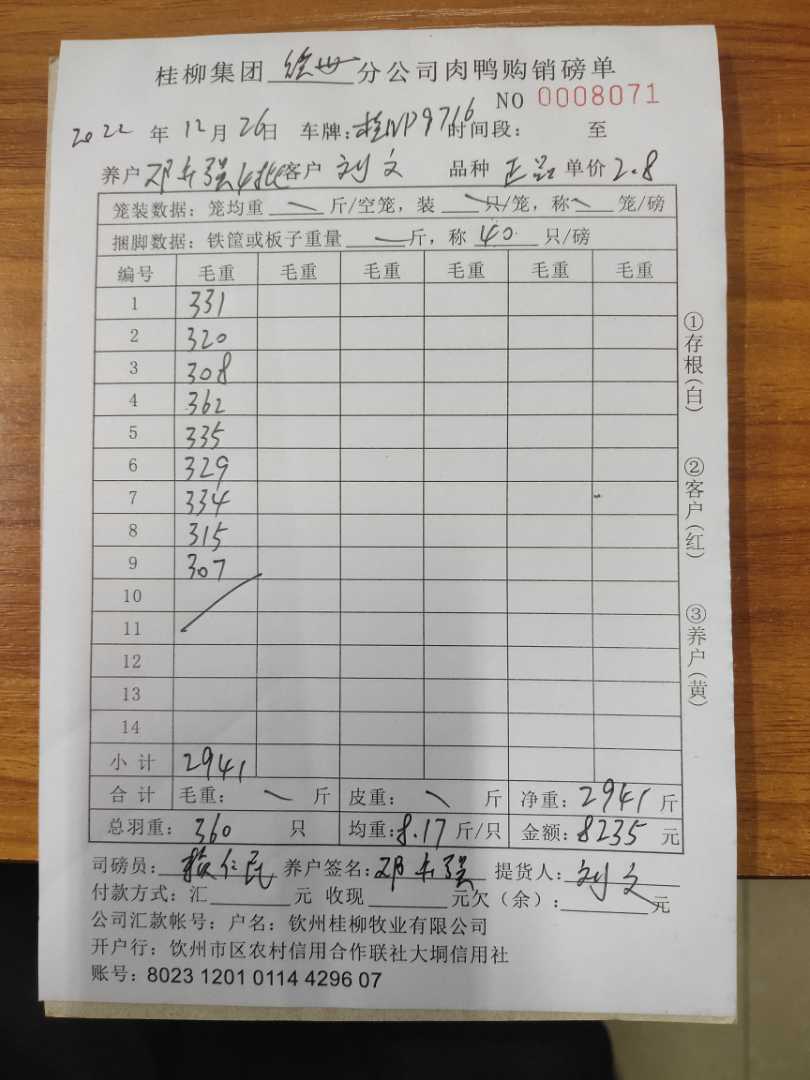 桂柳集团 分公司肉鸭购销磅单
NO 0008071
2022 年 12 月 26 日 车牌：桂NP9716 时间段： 至
养户 邓 强 批 客户 刘文 品种 正品 单价 2.8
笼装数据：笼均重 斤/空笼，装 只/笼，称 笼/磅
捆脚数据：铁筐或板子重量 斤，称 40 只/磅
编号 毛重 毛重 毛重 毛重 毛重 毛重
1 331
2 320
3 308
4 362
5 335
6 329
7 334
8 315
9 307
10
11
12
13
14
小计 2941
合计 毛重： 斤 皮重： 斤 净重：2941 斤
总羽重：360 只 均重：8.17 斤/只 金额：8235 元
司磅员： 仁民 养户签名：邓 强 提货人：刘文
付款方式：汇 元 收现 元欠（余）： 元
公司汇款帐号：户名：钦州桂柳牧业有限公司
开户行：钦州市区农村信用合作联社大垌信用社
账号：8023 1201 0114 4296 07
①存根(白)
②客户(红)
③养户(黄)